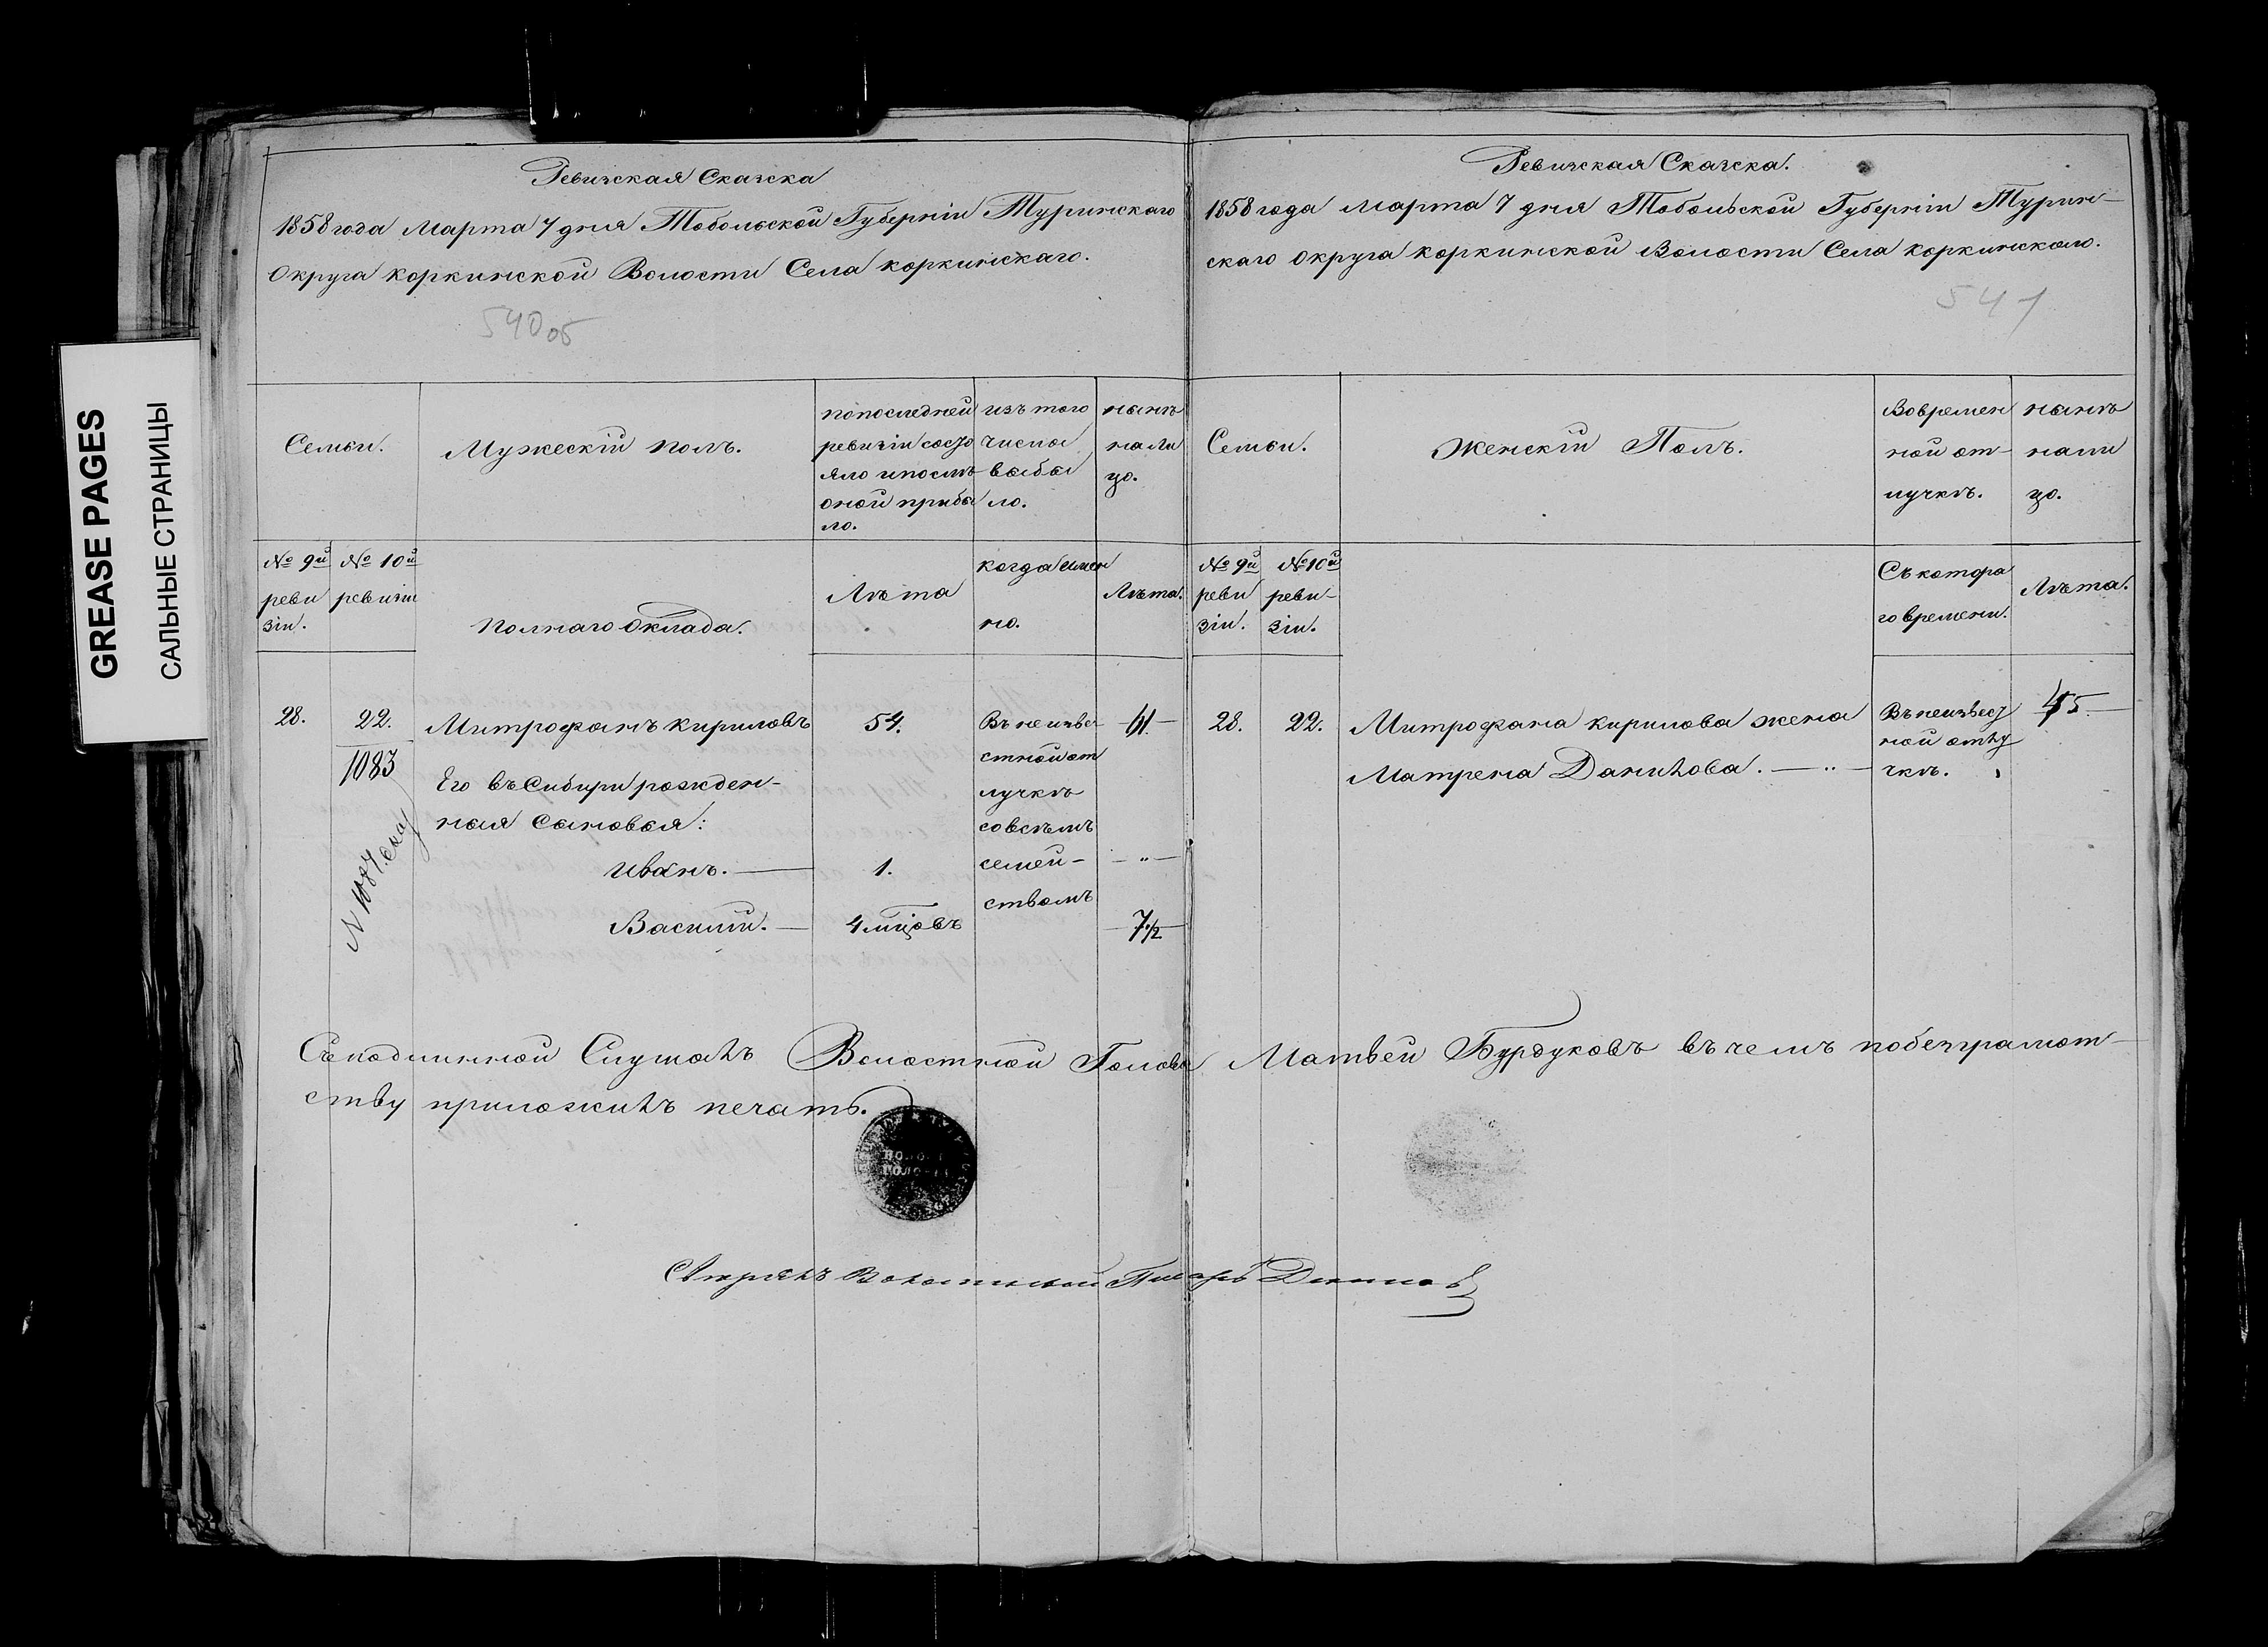 GREASE PAGES
САЛЬНЫЕ СТРАНИЦЫ
Ревизская Сказска
1858 года Марта 7 дня Тобольской Губерніи Туринскаго
Округа коркинской Волости Села коркинскаго.
540об
Семьи.
Мужескій полъ.
попоследней
ревизіи состо
яло ипослѣ
оной прибы
ло.
изъ того
числа
выбы
ло.
нынѣ
на ли
цо.
№ 9й
реви
зіи.
№ 10й
ревизіи
Полнаго Оклада.
Лѣта
когда имен
но.
Лѣта.
28.
22.
1083
Митрофанъ кириловъ
54.
Въ неизвѣ
стной от
лучкѣ
совсѣмъ
семей-
ствомъ
61
Его въ Сибири рожден-
ныя сыновья:
Иванъ.
1.
"
Василій.
4 мѣцовъ
7 1/2
Ревизская Сказска.
1858 года Марта 7 дня Тобольской Губерніи Турин-
скаго Округа коркинской Волости Села коркинскаго.
541
Семьи.
Женскій Полъ.
Вовремен
ной от-
лучкѣ.
нынѣ
нали
цо.
№ 9й
реви
зіи.
№ 10й
реви-
зіи.
Съ котора
го времени.
Лѣта.
28.
22.
Митрофана кирилова жена
Матрена Данилова. — " —
Въ неизвест
ной отлу
чкѣ.
45.
Съ подлинной Слушалъ Волостной Голова Матвей Бурдуковъ въ чемъ по безграмот-
ству приложилъ печать.
Волостной Писарь